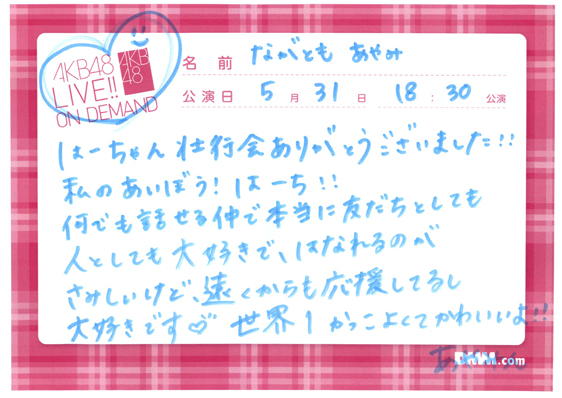 AKB48
LIVE!!
ON DEMAND
AKB
48
名前 ながとも あやみ
公演日 5月31日 18:30公演
はーちゃん壮行会ありがとうございました!!
私のあいぼう!はーち!!
何でも話せる仲で本当に友だちとしても
人としても大好きで、はなれるのが
さみしいけど、遠くからも応援してるし
大好きです♡ 世界1かっこよくてかわいいよ!!
DMM.com